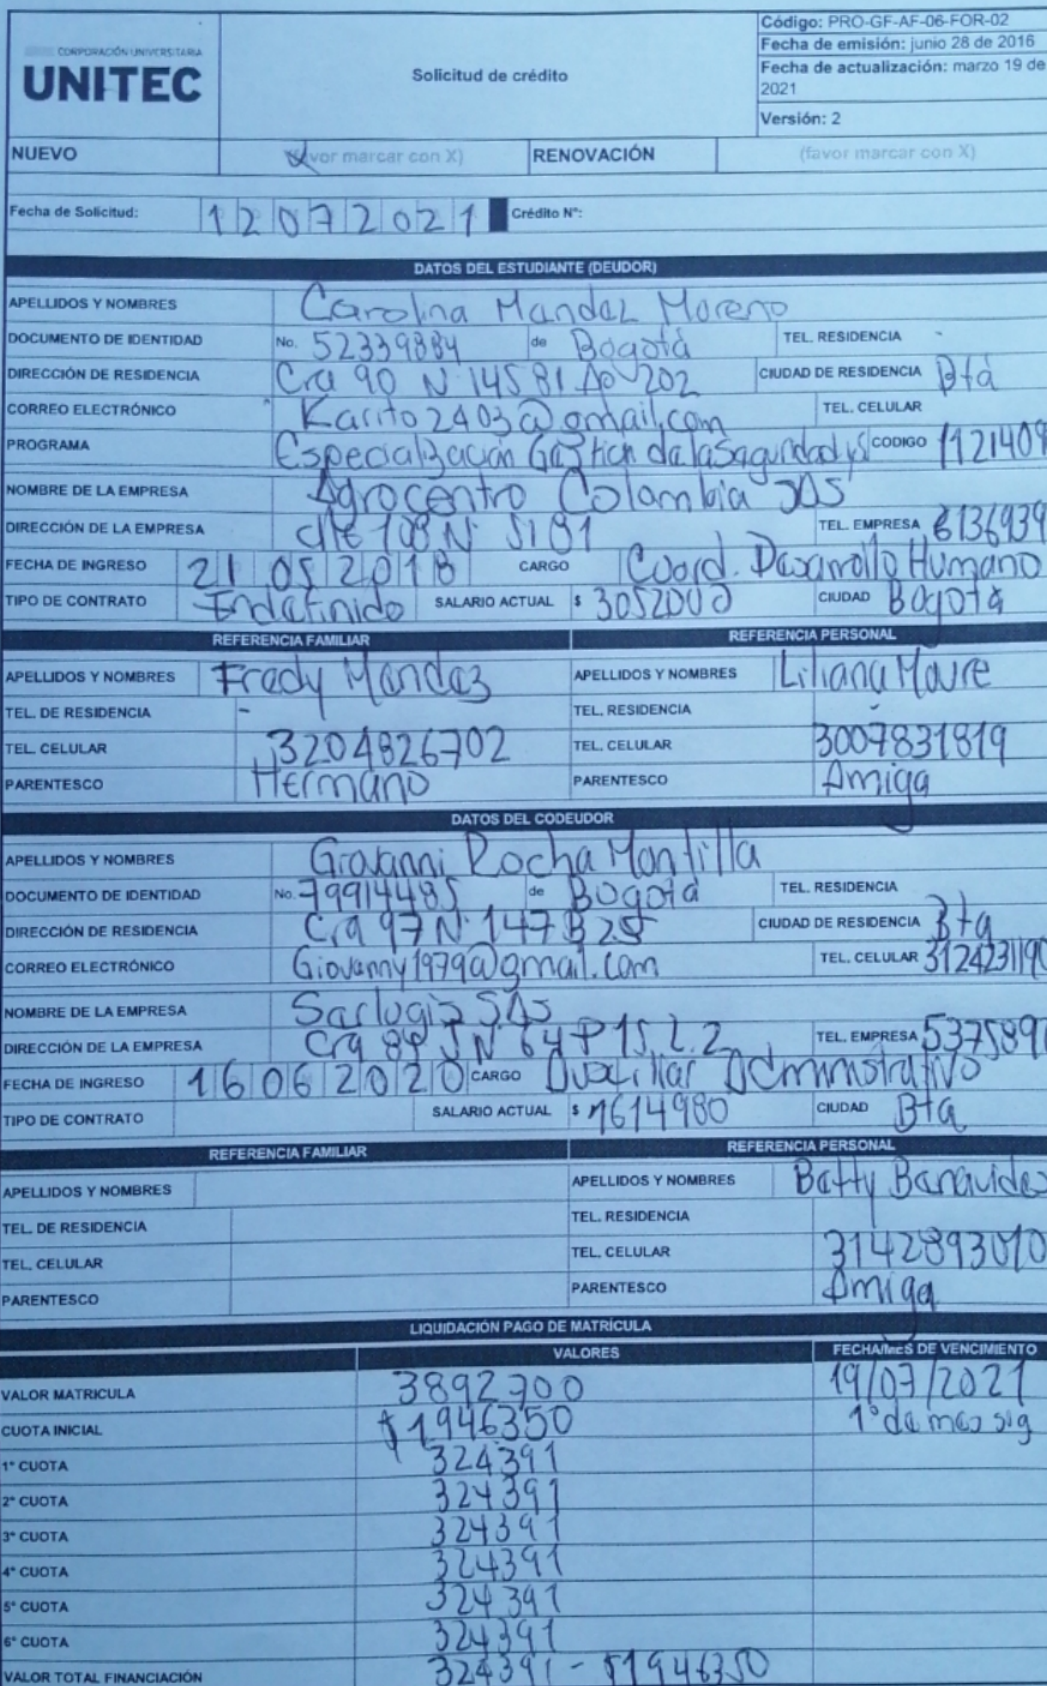 CORPORACIÓN UNIVERSITARIA
UNITEC
Solicitud de crédito
Código: PRO-GF-AF-06-FOR-02
Fecha de emisión: junio 28 de 2016
Fecha de actualización: marzo 19 de 2021
Versión: 2
NUEVO (favor marcar con X) RENOVACIÓN (favor marcar con X)
Fecha de Solicitud: 12072021 Crédito N°:
DATOS DEL ESTUDIANTE (DEUDOR)
APELLIDOS Y NOMBRES Carolina Mendez Moreno
DOCUMENTO DE IDENTIDAD No. 52339884 de Bogotá TEL. RESIDENCIA -
DIRECCIÓN DE RESIDENCIA Cra 90 N 145 81 Ap 202 CIUDAD DE RESIDENCIA Btá
CORREO ELECTRÓNICO Karito2403@gmail.com TEL. CELULAR
PROGRAMA Especialización Gestion de la Seguridad y S CODIGO 1121409
NOMBRE DE LA EMPRESA Agrocentro Colombia SAS
DIRECCIÓN DE LA EMPRESA clle 108 N 51 81 TEL. EMPRESA 6136939
FECHA DE INGRESO 21 05 2018 CARGO Coord. Desarrollo Humano
TIPO DE CONTRATO Indefinido SALARIO ACTUAL $ 3052000 CIUDAD Bogotá
REFERENCIA FAMILIAR REFERENCIA PERSONAL
APELLIDOS Y NOMBRES Fredy Mendez APELLIDOS Y NOMBRES Liliana
TEL. DE RESIDENCIA - TEL. RESIDENCIA -
TEL. CELULAR 3204826702 TEL. CELULAR 3007831819
PARENTESCO Hermano PARENTESCO Amiga
DATOS DEL CODEUDOR
APELLIDOS Y NOMBRES Giovanni Rocha Montilla
DOCUMENTO DE IDENTIDAD No. 79914485 de Bogotá TEL. RESIDENCIA
DIRECCIÓN DE RESIDENCIA Cra 97 N 147 B 25 CIUDAD DE RESIDENCIA Bta
CORREO ELECTRÓNICO Giovanny1979@gmail.com TEL. CELULAR 3124231190
NOMBRE DE LA EMPRESA Sarlogis SAS
DIRECCIÓN DE LA EMPRESA Cra N 64 TEL. EMPRESA 5375897
FECHA DE INGRESO 16062020 CARGO Auxiliar Administrativo
TIPO DE CONTRATO SALARIO ACTUAL $ 1614980 CIUDAD Bta
REFERENCIA FAMILIAR REFERENCIA PERSONAL
APELLIDOS Y NOMBRES APELLIDOS Y NOMBRES Betty Benavides
TEL. DE RESIDENCIA TEL. RESIDENCIA
TEL. CELULAR TEL. CELULAR 3142893010
PARENTESCO PARENTESCO Amiga
LIQUIDACIÓN PAGO DE MATRÍCULA
VALORES FECHA/MES DE VENCIMIENTO
VALOR MATRICULA 3892700 19/07/2021
CUOTA INICIAL $1946350 1° de mes sig
1° CUOTA 324391
2° CUOTA 324391
3° CUOTA 324391
4° CUOTA 324391
5° CUOTA 324391
6° CUOTA 324391
VALOR TOTAL FINANCIACIÓN 324391 - $1946350